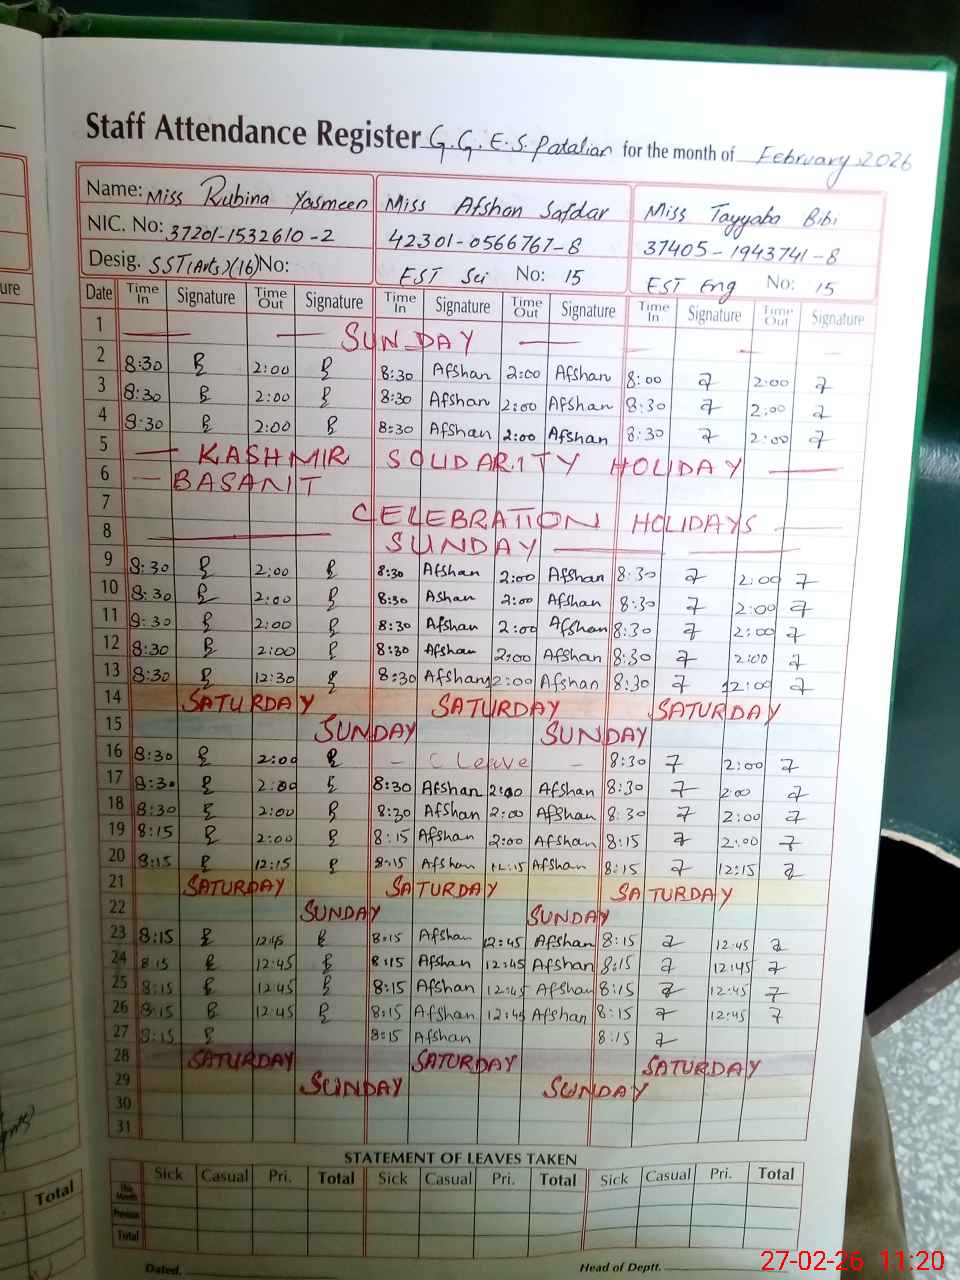 Staff Attendance Register G.G.E.S. Patalian for the month of February 2026
Name: Miss Rubina Yasmeen Miss Afshan Safdar Miss Tayyaba Bibi
NIC. No: 37201-1532610-2 42301-0566767-8 37405-1943741-8
Desig. SST(Arts)(16) No: EST Sci No: 15 EST Eng No: 15
Date Time In Signature Time Out Signature Time In Signature Time Out Signature Time In Signature Time Out Signature
1 SUNDAY
2 8:30 2:00 8:30 Afshan 2:00 Afshan 8:00 2:00
3 8:30 2:00 8:30 Afshan 2:00 Afshan 8:30 2:00
4 8:30 2:00 8:30 Afshan 2:00 Afshan 8:30 2:00
5 — KASHMIR SOLIDARITY HOLIDAY —
6 — BASANIT
7 CELEBRATION HOLIDAYS
8 SUNDAY
9 8:30 2:00 8:30 Afshan 2:00 Afshan 8:30 2:00
10 8:30 2:00 8:30 Ashan 2:00 Afshan 8:30 2:00
11 8:30 2:00 8:30 Afshan 2:00 Afshan 8:30 2:00
12 8:30 2:00 8:30 Afshan 2:00 Afshan 8:30 2:00
13 8:30 12:30 8:30 Afshan 12:00 Afshan 8:30 12:00
14 SATURDAY SATURDAY SATURDAY
15 SUNDAY SUNDAY
16 8:30 2:00 — C Leave — 8:30 2:00
17 8:30 2:00 8:30 Afshan 2:00 Afshan 8:30 2:00
18 8:30 2:00 8:30 Afshan 2:00 Afshan 8:30 2:00
19 8:15 2:00 8:15 Afshan 2:00 Afshan 8:15 2:00
20 8:15 12:15 8:15 Afshan 12:15 Afshan 8:15 12:15
21 SATURDAY SATURDAY SATURDAY
22 SUNDAY SUNDAY
23 8:15 12:45 8:15 Afshan 12:45 Afshan 8:15 12:45
24 8:15 12:45 8:15 Afshan 12:45 Afshan 8:15 12:45
25 8:15 12:45 8:15 Afshan 12:45 Afshan 8:15 12:45
26 8:15 12:45 8:15 Afshan 12:45 Afshan 8:15 12:45
27 8:15 8:15 Afshan 8:15
28 SATURDAY SATURDAY SATURDAY
29 SUNDAY SUNDAY
30
31
STATEMENT OF LEAVES TAKEN
Sick Casual Pri. Total Sick Casual Pri. Total Sick Casual Pri. Total
This Month
Previous
Total
Dated. Head of Deptt.
ure
Total
27-02-26 11:20